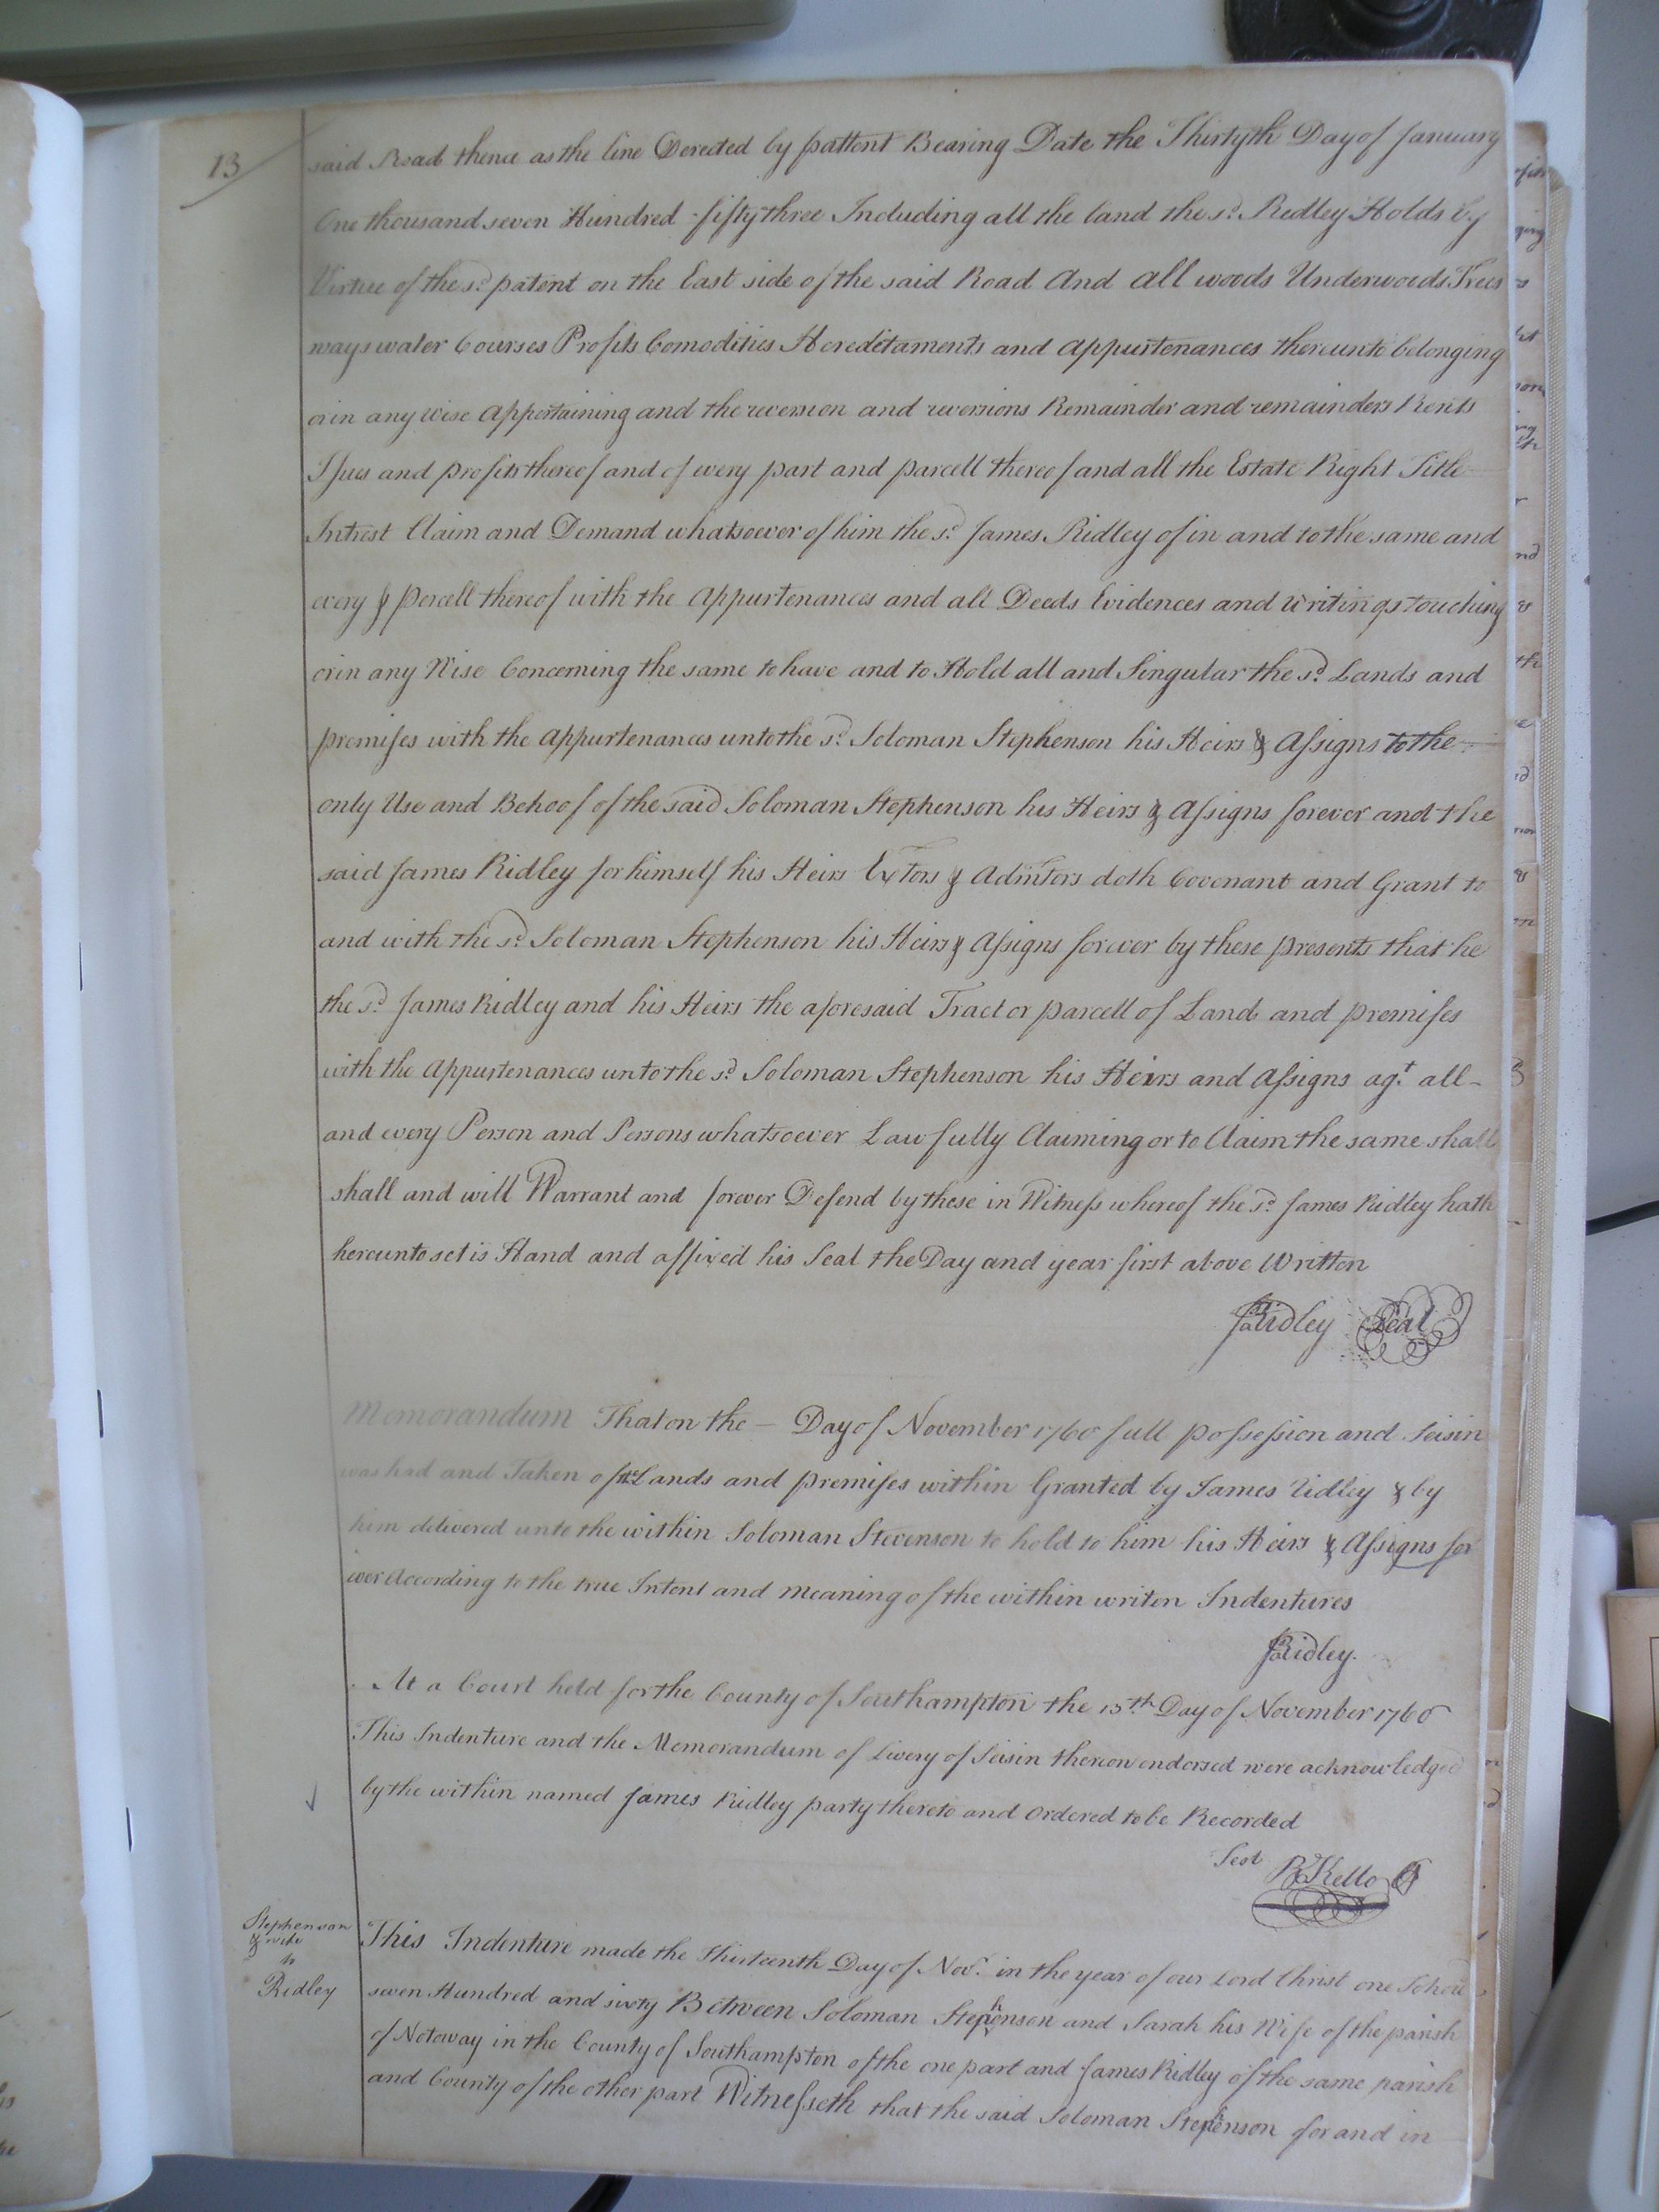 13
said Road thence as the line Derected by pattent Bearing Date the Thirtyth Day of January
One thousand seven Hundred fifty three Including all the land the sd. Ridley Holds by
Virtue of the sd. patent on the East side of the said Road And all woods Underwoods Trees
ways water Courses Profits Comodities Hereditaments and appurtenances thereunto belonging
or in any wise appertaining and the reversion and reversions Remainder and remainders Rents
Issues and profits thereof and of every part and parcell thereof and all the Estate Right Title
Intrest Claim and Demand whatsoever of him the sd. James Ridley of in and to the same and
every & percell thereof with the appurtenances and all Deeds Evidences and writings touching
or in any Wise Concerning the same to have and to Hold all and Singular the sd. Lands and
premises with the appurtenances unto the sd. Soloman Stephenson his Heirs & Assigns to the
only Use and Behoof of the said Soloman Stephenson his Heirs & Assigns forever and the
said James Ridley for himself his Heirs Extors & Admtors doth Covenant and Grant to
and with the sd. Soloman Stephenson his Heirs & Assigns forever by these presents that he
the sd. James Ridley and his Heirs the aforesaid Tract or parcell of Land and premises
with the appurtenances unto the sd. Soloman Stephenson his Heirs and Assigns agt. all
and every Person and Persons whatsoever Lawfully Claiming or to Claim the same shall
shall and will Warrant and forever Defend by these in Witness whereof the sd. James Ridley hath
hereunto set is Hand and affixed his Seal the Day and year first above Written
Jas Ridley Seal
Memorandum That on the — Day of November 1760 full possession and Seisin
was had and Taken of the Lands and premises within Granted by James Ridley & by
him delivered unto the within Soloman Stevenson to hold to him his Heirs & Assigns for
ever According to the true Intent and meaning of the within writen Indentures
Jas Ridley.
At a Court held for the County of Southampton the 15th. Day of November 1760
This Indenture and the Memorandum of Livery of Seisin thereon endorsed were acknowledged
by the within named James Ridley party thereto and Ordered to be Recorded
Test Rd Kello
Stephenson
& wife
to
Ridley
This Indenture made the Thirteenth Day of Novr. in the year of our Lord Christ one Thou
seven Hundred and sixty Between Soloman Stephenson and Sarah his Wife of the parish
of Notoway in the County of Southampton of the one part and James Ridley of the same parish
and County of the other part Witnesseth that the said Soloman Stephenson for and in